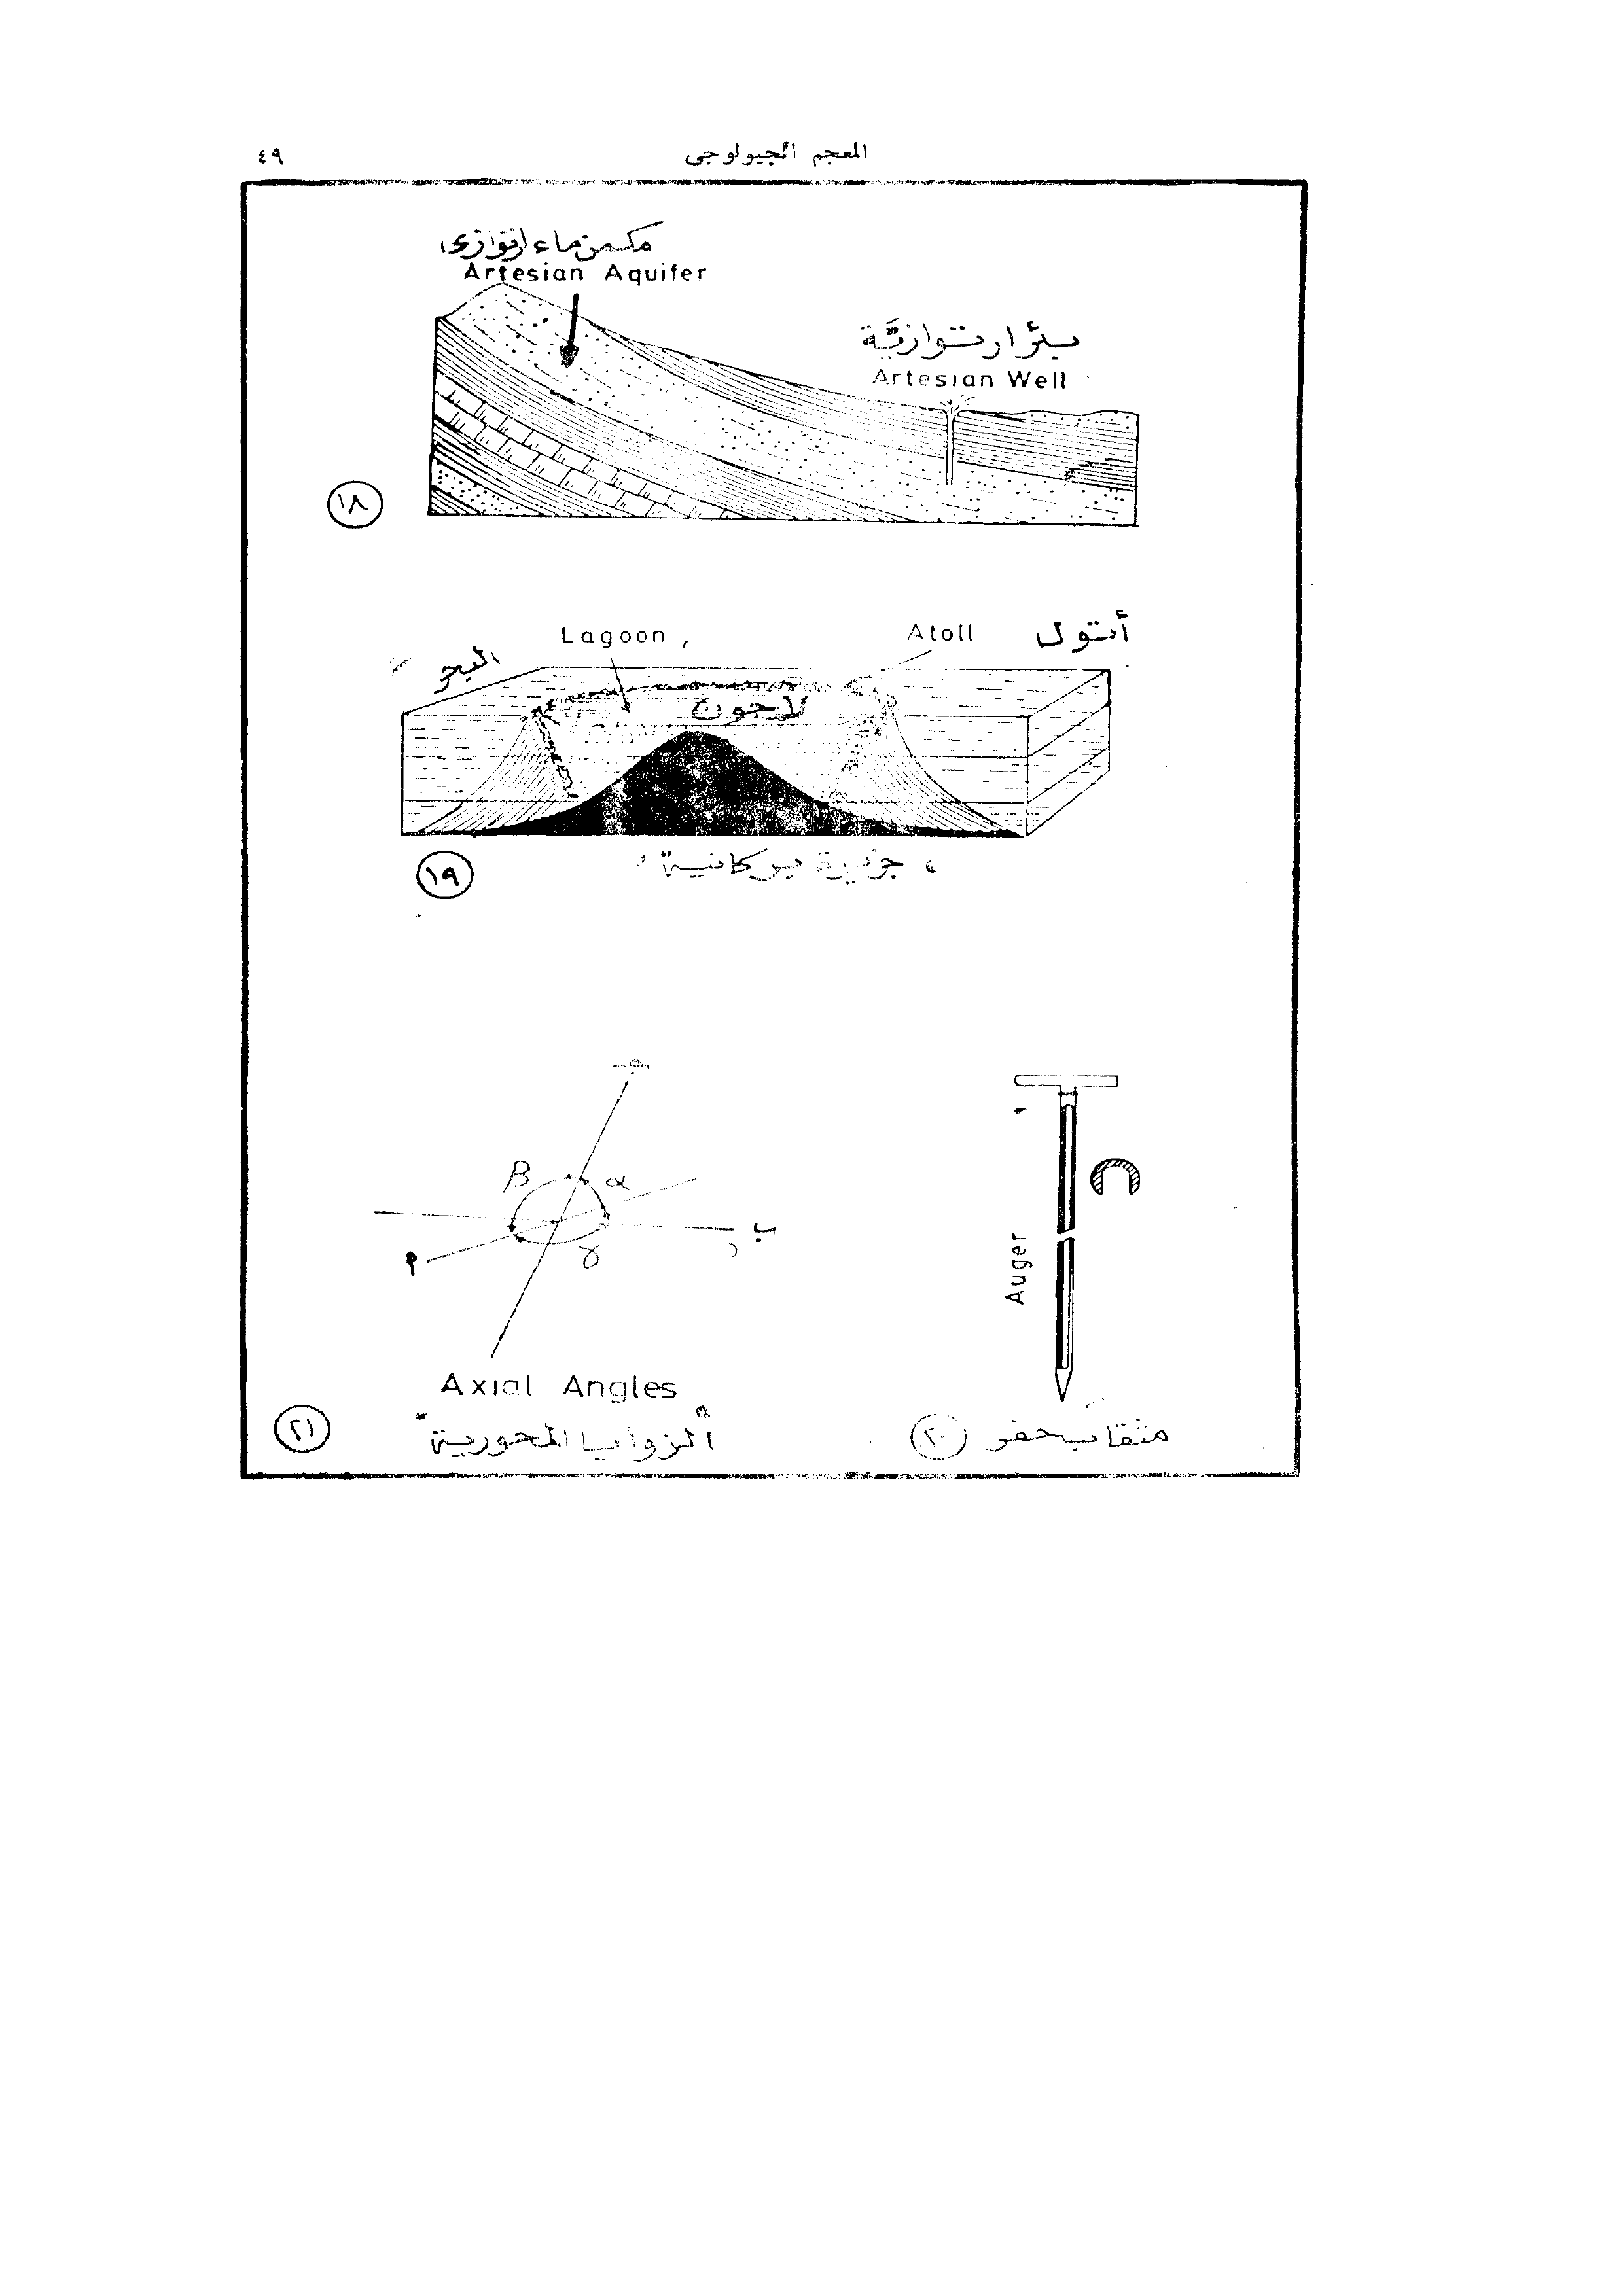 المعجم الجيولوجى
٤٩
مكمن ماء ارتوازى
Artesian Aquifer
بئر ارتوازيَّة
Artesian Well
١٨
Lagoon
Atoll
أتول
البحر
لاجون
جزيرة بركانية
١٩
جـ
β
α
ب
γ
٢
Auger
Axial Angles
ألزوايا المحورية
٢١
مثقاب حفر
٢٠